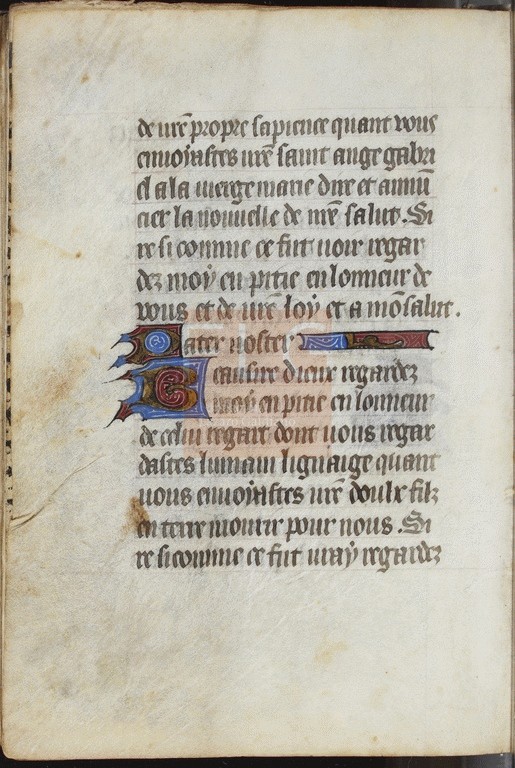 de vr̄e propre sapience quant vous
envoiastes vr̄e saint ange gabri
el a la vierge marie dire et annū
cier la nouuelle de nr̄e salut. Si
re si comme ce fut voir regar
dez moy en pitie en lonneur de
vous et de vr̄e loy et a mō salut.
Pater noster
Et aussire dieux regardez
moy en pitie en lonneur
de celui regart dont vous regar
dastes lumain lignaige quant
vous envoiastes vr̄e doulx filz
en terre mourir pour nous. Si
re si comme ce fut vray regardez